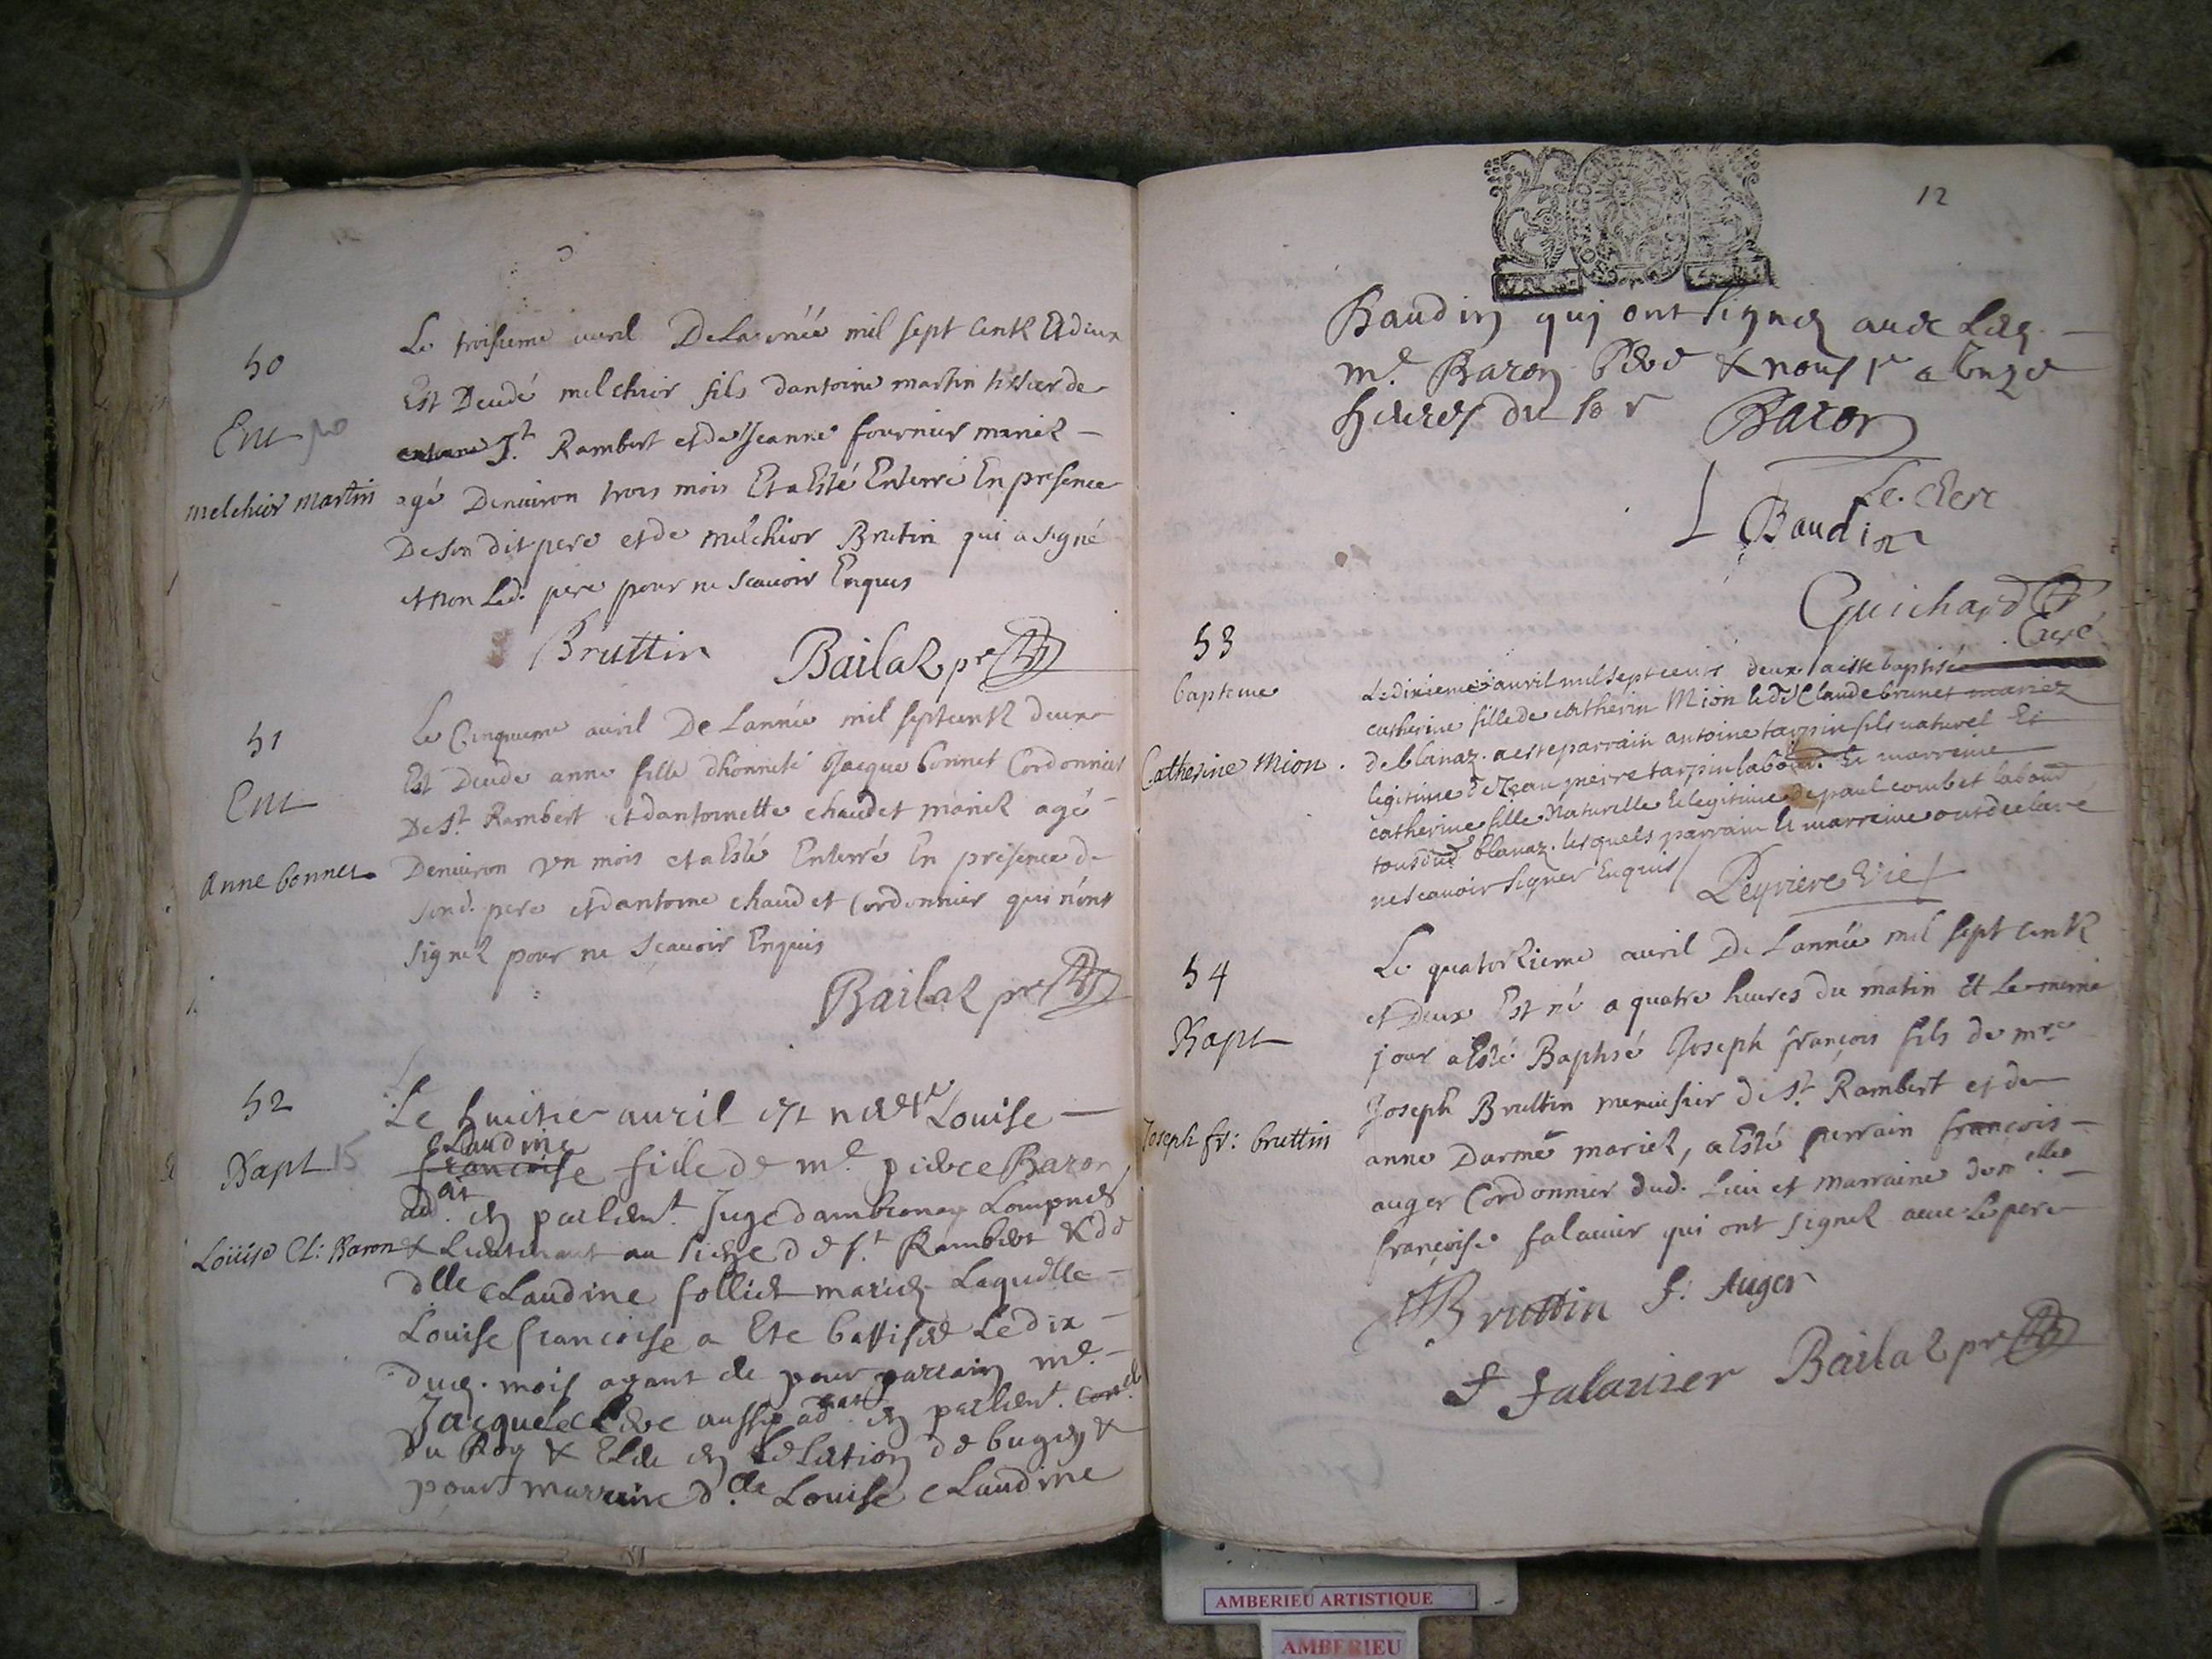 50
Ent
melchior martin
Le troisieme auril De Lannée mil sept centz Et deux
Est Decedé melchior fils dantoine martin de
St. Rambert et de Jeanne fournier mariez
agé Denuiron trois mois Et a Esté Enterré En presence
De son dit pere et de melchior Brutin qui a signé
et non Led. pere pour ne scauoir Enquis
Bruttin Bailaz pre
51
Ent
Anne bonnet
Le Cinquieme auril De Lannée mil sept centz deux
Est Decede anne fille dhonneté Jacque bonnet Cordonnier
De St. Rambert et dantoinette chaudet mariez agé
Denuiron vn mois et a Esté Enterré En présence de
sond. pere et dantoine chaudet Cordonnier qui n'ont
signez pour ne scauoir Enquis
Bailaz pre
52
Bapt 15
Louise Cl: Baron
Le huitie auril est Louise
Claudine
francoise fille de me. pierre Baron
adat. en parlemt. Juge dambronay Lompnes
& Lieutenant au siege de St. Rambert & de
dlle Claudine folliet mariez Laquelle
Louise francoise a Ete battisée Le dix
dud. mois ayant de pour parrain me.
Jacque leclerc aussy adat en parlemt.
du Roy & Eleu en Lelection de bugey &
pour marraine dlle Louise Claudine
12
Baudin qui ont signez auec Led.
me. Baron Pere & nous a
heures du soir
Baron
Le Clerc
L Baudin
Guichard
Curé
53
bapteme
Catherine Mion
Le dixieme auril mil sept cents deux a esté baptisée
catherine fille de catherin Mion Claude brunet mariez
de blanaz. a esté parrain antoine tarpin fils naturel Et
legitime de Jean pierre tarpin labour. Et marreine
catherine fille Naturelle Et legitime de paul combet laboud
tous dud blanaz. lesquels parrain Et marreine ont declaré
ne scauoir signer Enquis Peyriere vic
54
Bapt
Joseph fr: bruttin
Le quatorzieme auril De Lannée mil sept centz
et Deux Est né a quatre heures du matin Et Le meme
jour a Esté Baptisé Joseph françois fils de mre
Joseph Bruttin menuisier de St. Rambert et de
anne Darmé mariez, a Esté perrain francois
auger Cordonnier dud. Lieu et marraine demelle
françoise falauier qui ont signez auec Le pere
Bruttin f. Auger
f falauier Bailaz pre
AMBERIEU ARTISTIQUE
AMBERIEU